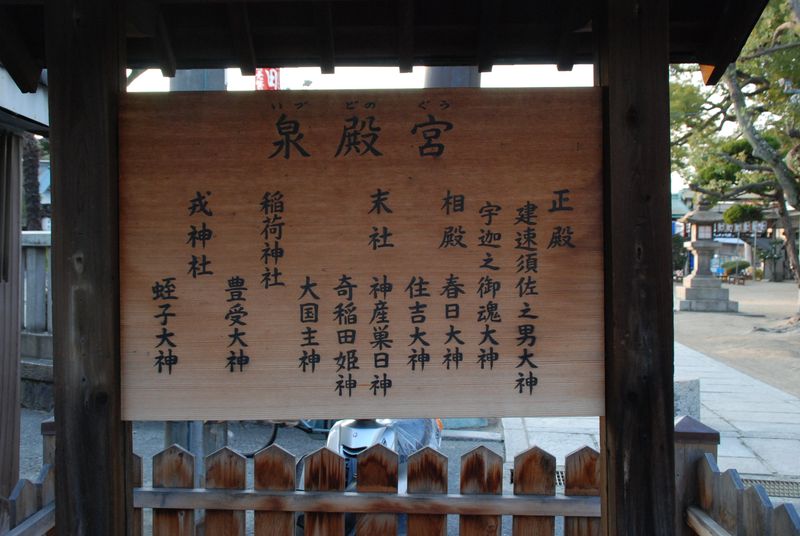 いづどのぐう
泉殿宮
正殿
建速須佐之男大神
宇迦之御魂大神
相殿 春日大神
住吉大神
末社 神産巣日神
奇稲田姫神
大国主神
稲荷神社
豊受大神
戎神社
蛭子大神